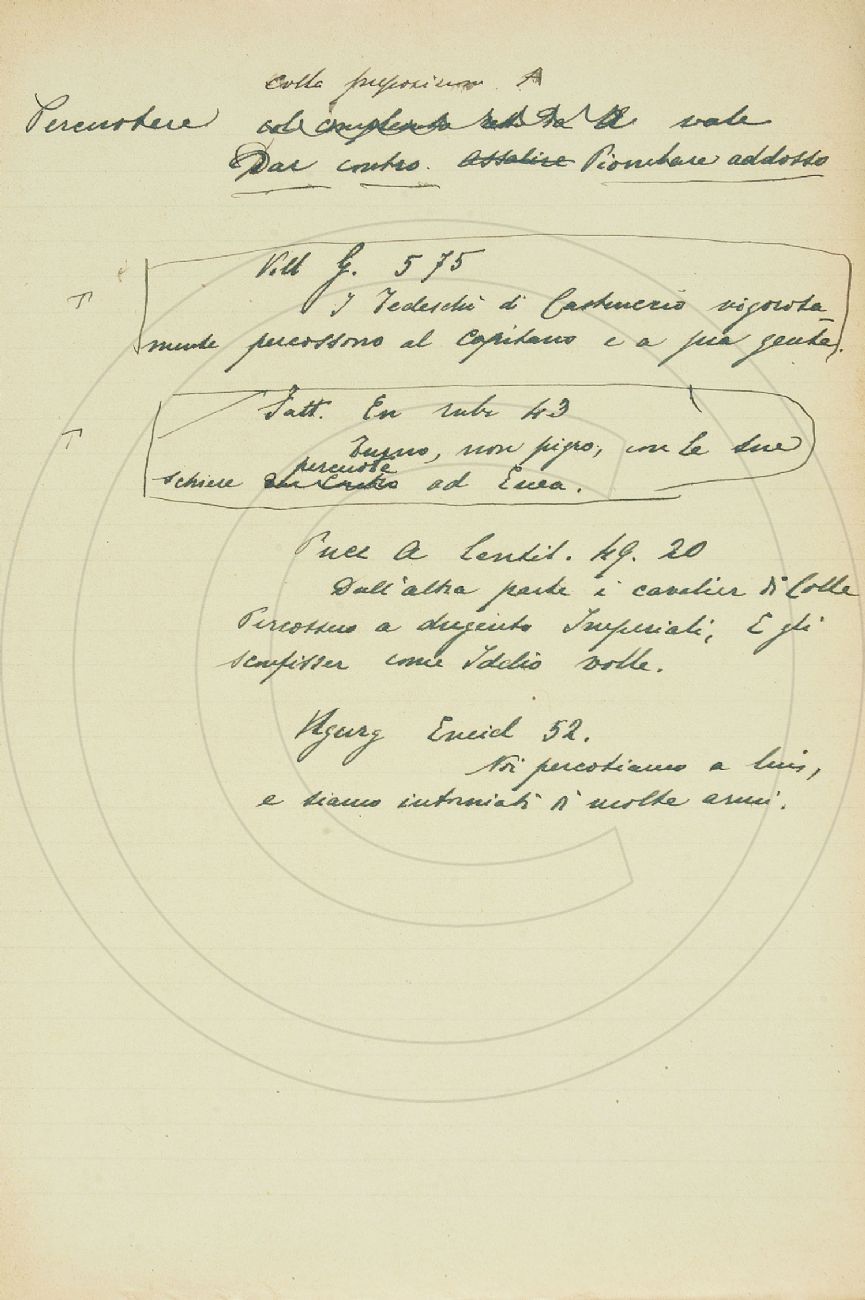 colla preposizione A
Percuotere col complemento retto Da A vale
Dar contro. Assalire Piombare addosso
Vill G. 575
I Tedeschi di Castruccio vigorosa
mente percossono al capitano e a sua gente.
Fatt. En rubr 43
Turno, non pigro, con le sue
percuote
schiere ad Enea.
Pucc A Centil. 49. 20
Dall'altra parte i cavalier di Colle
Percossero a dugento Imperiali, E gli
sconfisser come Iddio volle.
Ugurg Eneid 52.
Noi percotiamo a loro,
e siamo intorniati di molte armi.